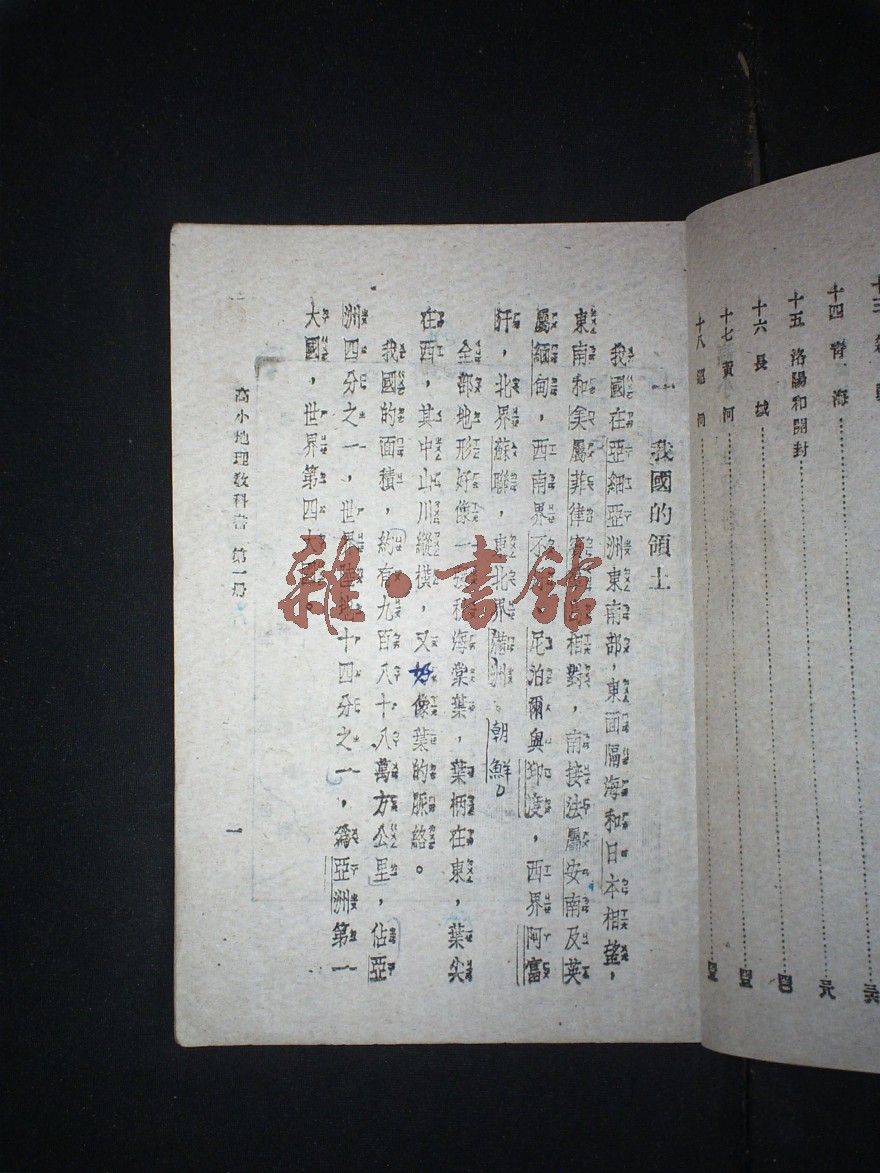 十四 青海
十五 洛陽和開封
十六 長城
十七 黃河
一 我國的領土
我國在亞細亞洲東南部，東面隔海和日本相望，
東南和美屬菲律相對，南接法屬安南及英
屬緬甸，西南界不尼泊爾與印度，西界阿富
汗，北界蘇聯，東北界滿洲。朝鮮。
全部地形好像一海棠葉，葉柄在東，葉尖
在西，其中山川縱橫，又好像葉的脈絡。
我國的面積，約有九百八十八萬方公里，佔亞
洲四分之一，世界陸地十四分之一，為亞洲第一
大國，世界第四大
高小地理教科書 第一册
一
雜·書館